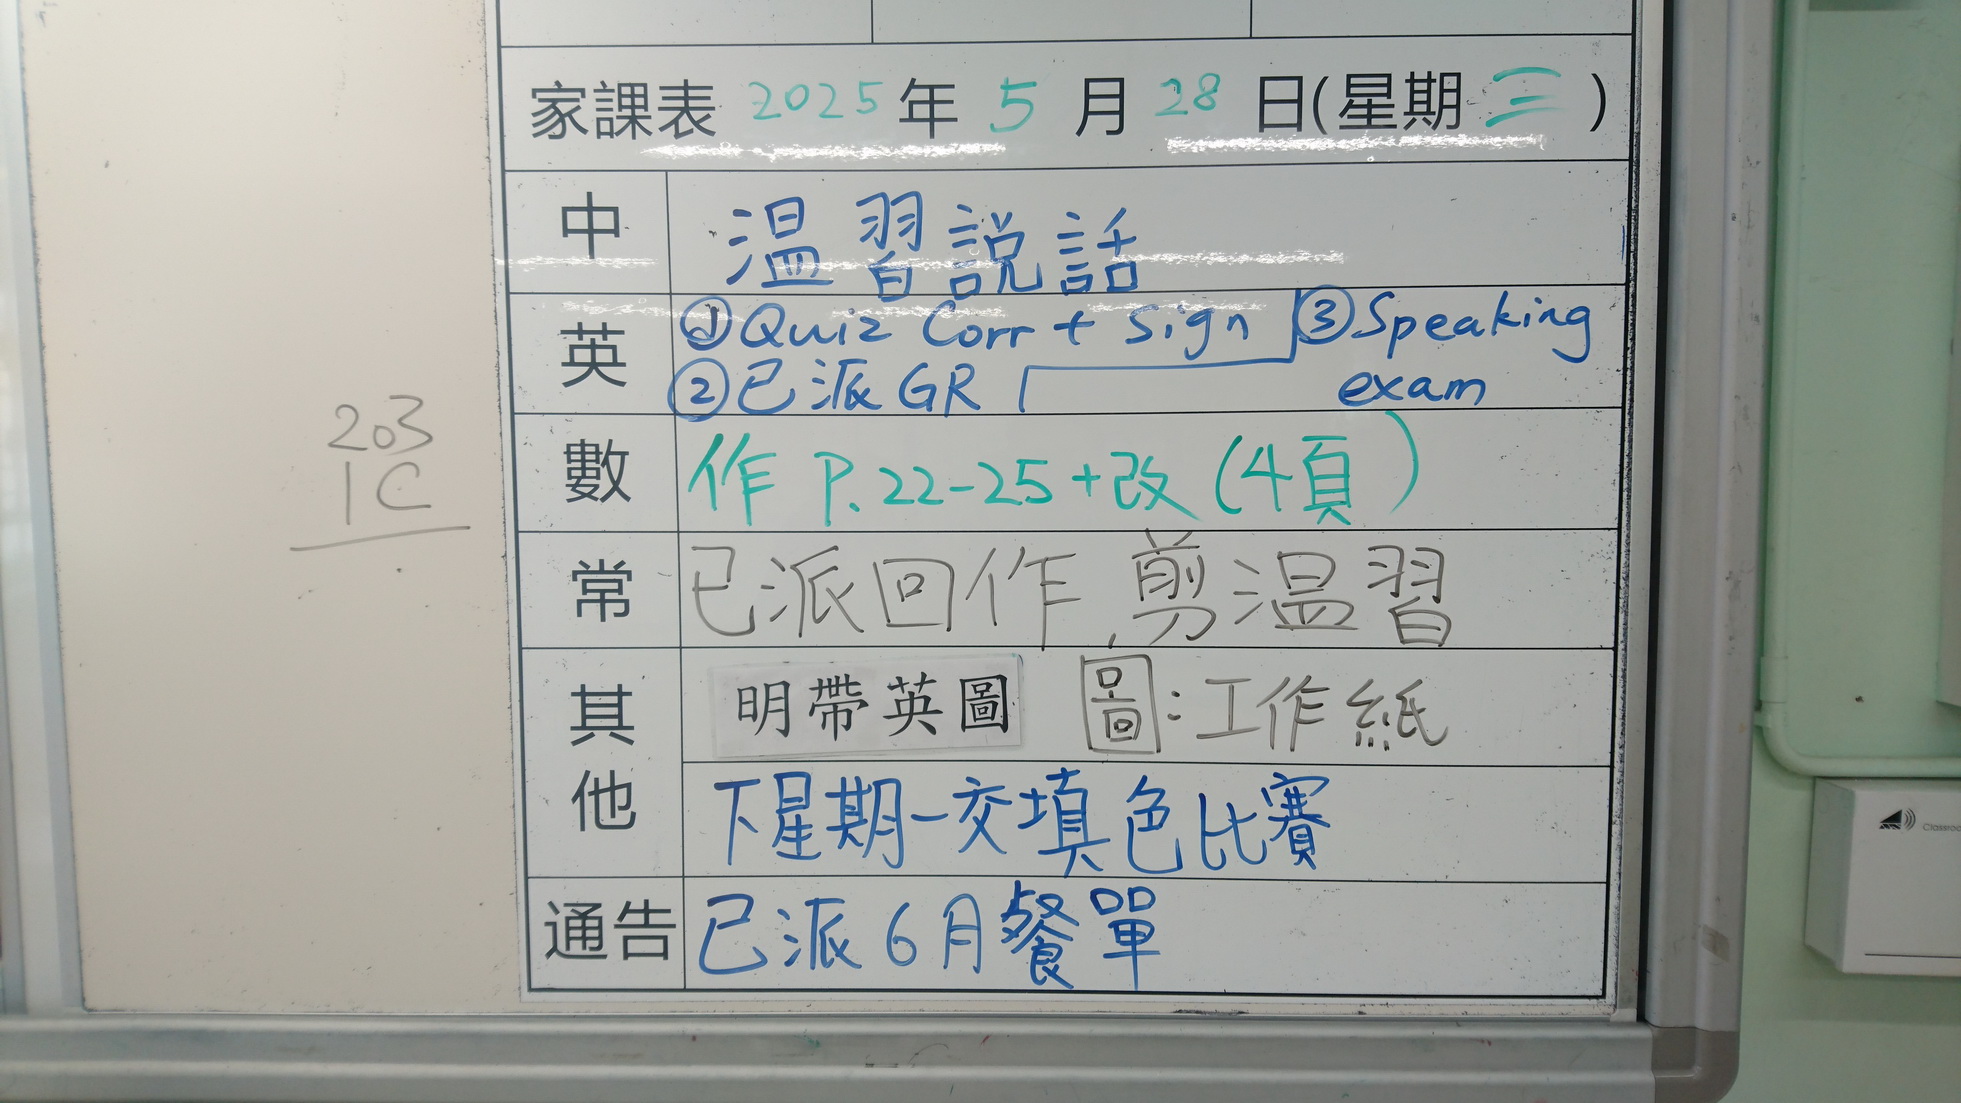 203
1C
家課表 2025 年 5 月 28 日(星期 三 )
中 温習説話
英 ①Quiz Corr + sign ③Speaking exam
②已派 GR
數 作 P.22-25+改 (4頁)
常 已派回作,剪温習
其他 明帶英圖 圖:工作紙
下星期一交填色比賽
通告 已派6月餐單